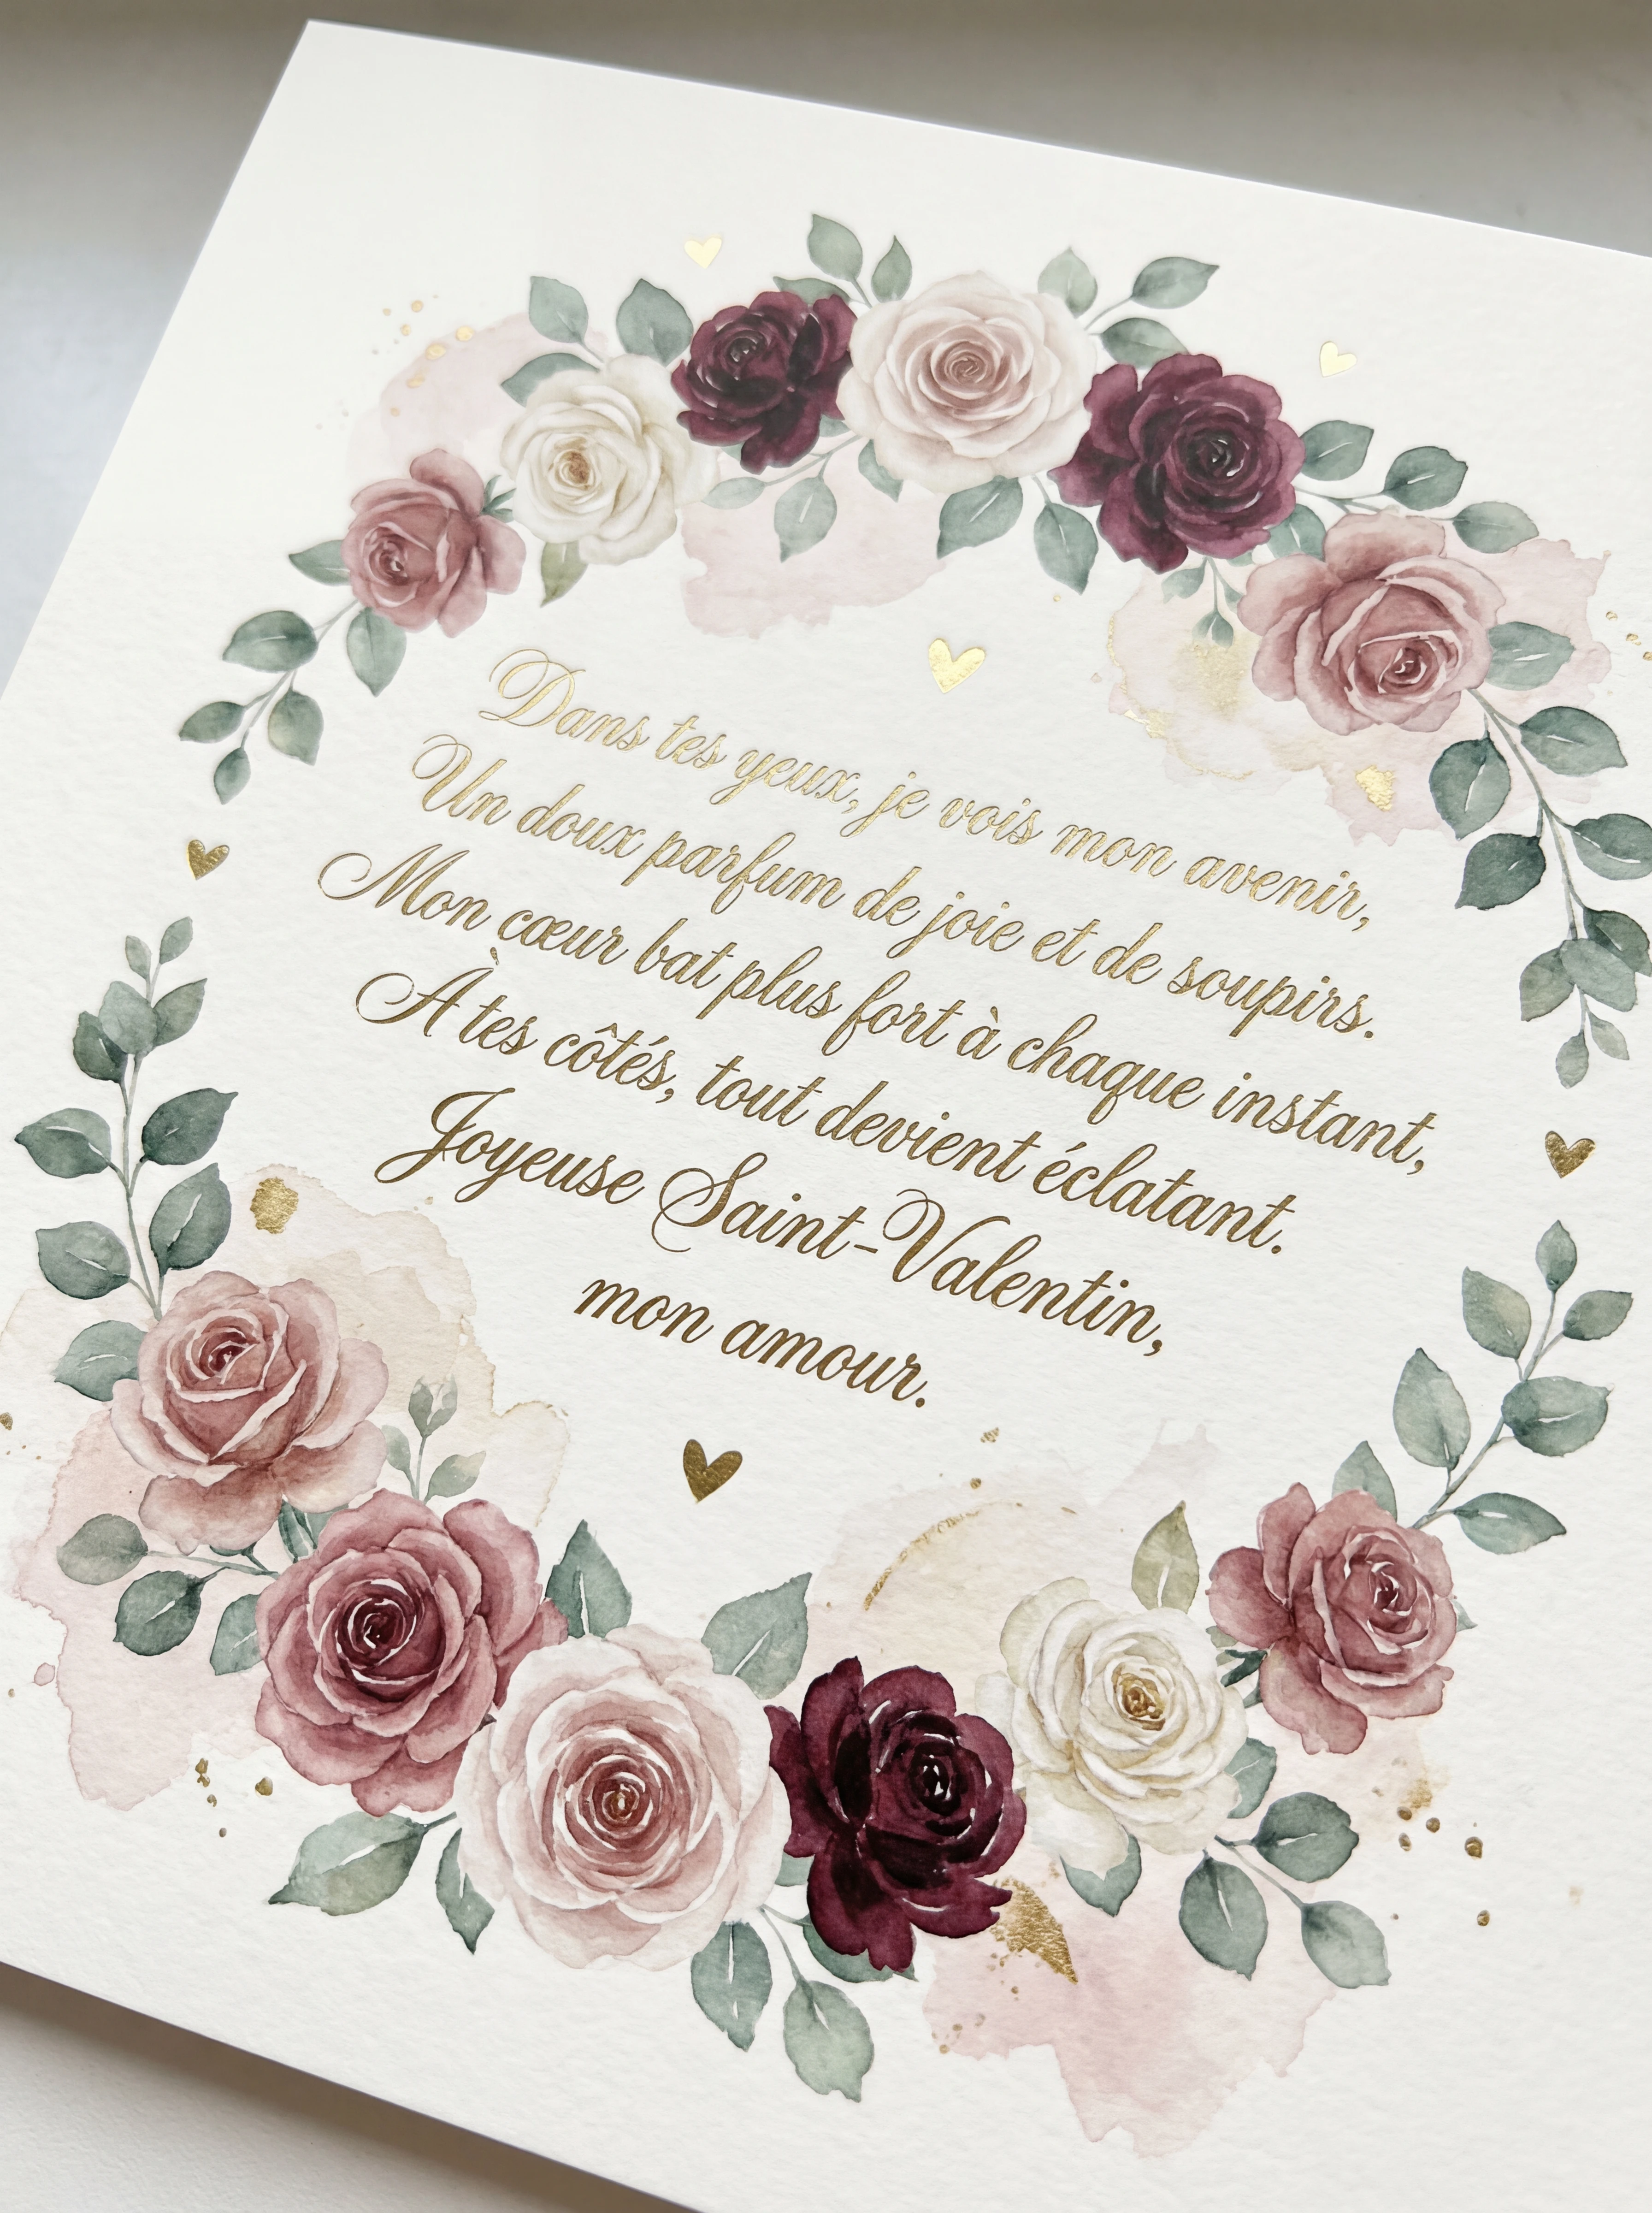 Dans tes yeux, je vois mon avenir,
Un doux parfum de joie et de soupirs.
Mon cœur bat plus fort à chaque instant,
À tes côtés, tout devient éclatant.
Joyeuse Saint-Valentin,
mon amour.